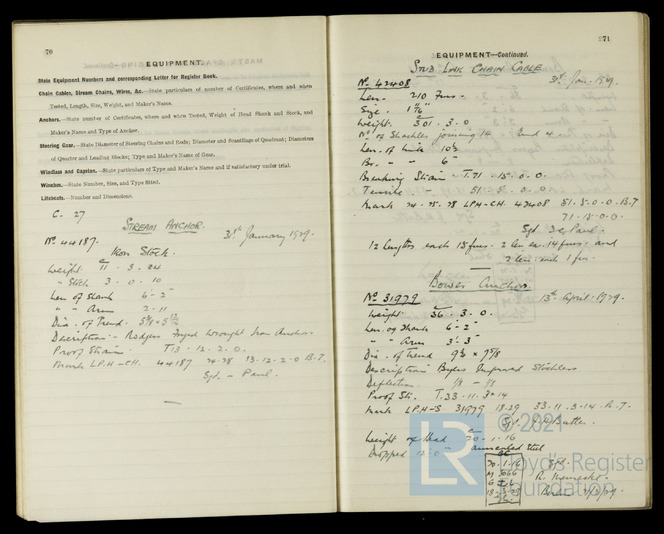 70
EQUIPMENT.
State Equipment Numbers and corresponding Letter for Register Book.
Chain Cables, Stream Chains, Wires, &c.—State particulars of number of Certificates, where and when
Tested, Length, Size, Weight, and Maker's Name.
Anchors.—State number of Certificates, where and when Tested, Weight of Head Shank and Stock, and
Maker's Name and Type of Anchor.
Steering Gear.—State Diameter of Steering Chains and Rods; Diameter and Scantlings of Quadrant; Diameters
of Quarter and Leading Blocks; Type and Maker's Name of Gear.
Windlass and Capstan.—State particulars of Type and Maker's Name and if satisfactory under trial.
Winches.—State Number, Size, and Type fitted.
Lifeboats.—Number and Dimensions.
C. 27
STREAM ANCHOR.
No. 44187. 31st January 1929.
Iron Stock.
Weight 11 . 3 . 24
" Stock 3 . 0 . 10
Len of Shank 6 - 2
" " Arm 2 - 11
Dia. of Trend.
Description - Rodgers Wrought Iron Anchor
Proof Strain T13 . 12 . 2 . 0
Mark LP.H-CH. 44187 24-28 13.12.2.0 B.T.
Sgd. - Paul.
271
EQUIPMENT—Continued.
STUD LINK CHAIN CABLE
No. 42408 31st Jan. 1929.
Len. 210 Fms.
Size. 1
Weight. 301 . 3 . 0
No. of Shackles joining 14 - End 4
Len. of link 10½
Br. " " 6"
Breaking Strain T.71 . 15 . 0 . 0
Tensile - 51 . 5 . 0 . 0
Mark 24.28 LP.H-CH. 42408 51.5.0.0.B.T
71.15.0.0
Sgd. Paul.
12 lengths each 15 fms. - 2 len ea. 14 fms. and
2 len each 1 fm.
Bower Anchor
No 31979 13th April 1929.
Weight 36 . 3 . 0
Len. of Shank 6 - 2
" " Arm 3 - 3
Dia. of trend
Description Byers Improved Stockless
Deflection
Proof Str. T.33.11.3.14
Mark LP.H-S 31979 18.29 33.11.3.14 B.T.
Sgd. Butler.
Weight of Head 20.1.16
Dropped 12.0 - annealed steel
20.1.16 Sgd.
© 2021
LR
Lloyd's Register
Foundation